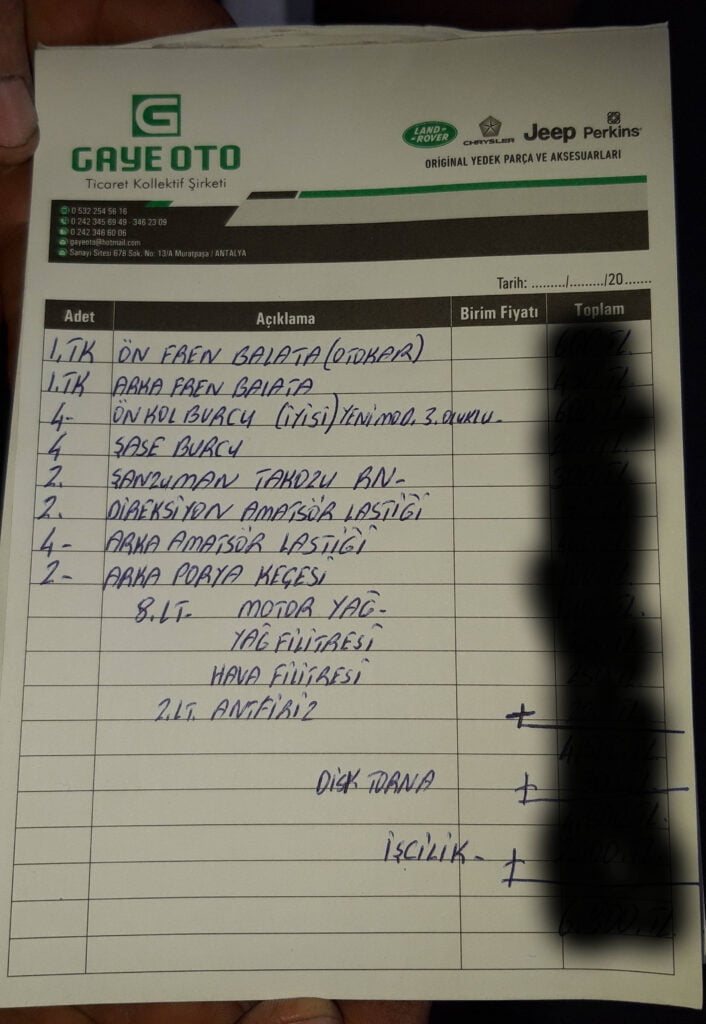 G
GAYE OTO
Ticaret Kollektif Şirketi
LAND-ROVER CHRYSLER Jeep Perkins
ORİGİNAL YEDEK PARÇA VE AKSESUARLARI
0 532 254 56 16
0 242 345 69 49 - 346 23 09
0 242 346 60 06
gayeoto@hotmail.com
Sanayi Sitesi 678 Sok. No: 13/A Muratpaşa / ANTALYA
Tarih: ........./........./20.......
Adet Açıklama Birim Fiyatı Toplam
1.TK ÖN FREN BALATA (OTOKAR)
1.TK ARKA FREN BALATA
4- ÖN KOL BURCU (İYİSİ) YENİ MOD. 3.OLUKLU.
4 ŞASE BURCU
2. ŞANZUMAN TAKOZU RN-
2. DİREKSİYON AMATSÖR LASTİĞİ
4- ARKA AMATSÖR LASTİĞİ
2- ARKA PORYA KEÇESİ
8.LT. MOTOR YAĞ-
YAĞ FİLİTRESİ
HAVA FİLİTRESİ
2.LT. ANTFİRİZ +
DİSK TORNA +
İŞCİLİK- +
6.300.TL